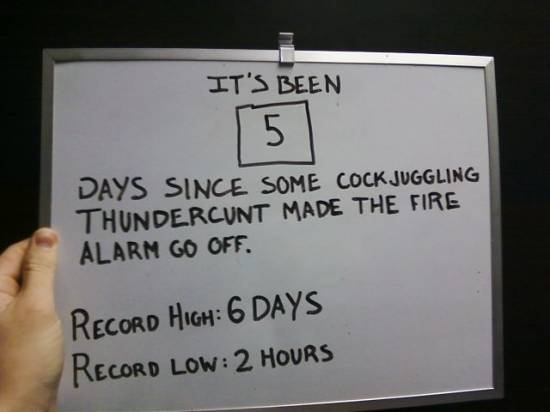 IT'S BEEN
5
DAYS SINCE SOME COCKJUGGLING
THUNDERCUNT MADE THE FIRE
ALARM GO OFF.
RECORD HIGH: 6 DAYS
RECORD LOW: 2 HOURS